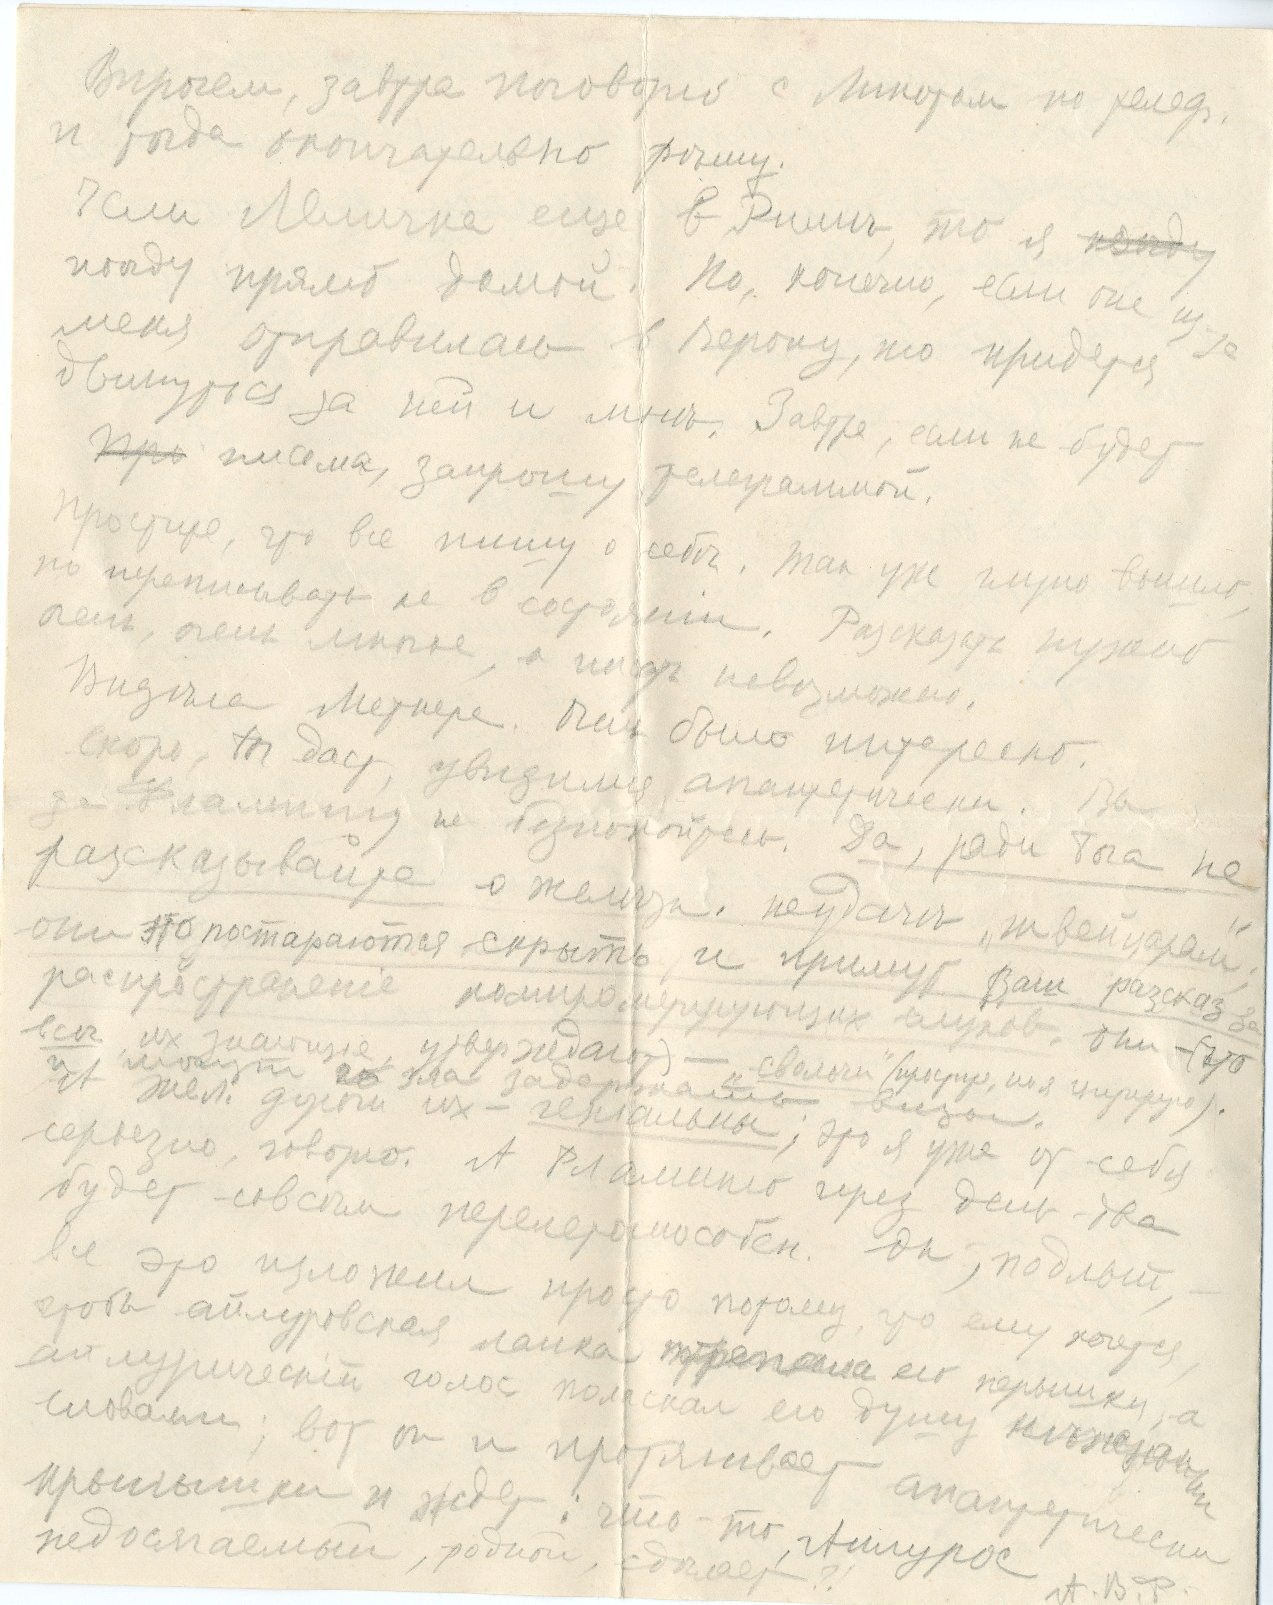 Впрочем, завтра поговорю с Минотом по телеф.
и тогда окончательно рѣшу.
Если Лѣличка еще в Римѣ, то я поѣду
поѣду прямо домой. Но, конечно, если она из-за
меня отправилась в Верону, то придется
двинуться за ней и мнѣ. Завтра, если не будет
Про письма, запрошу телеграммой.
Простите, что все пишу о себѣ. Так уже глупо вышло,
но переписывать не в состояніи. Разсказать нужно
очень, очень многое, а писать невозможно.
Видѣла Метнера. Очень было интересно.
Скоро, Бг даст, увидимся апантетически. Вы
за Фламинго не безпокойтесь. Да, ради Бога не
разсказывайте о желѣзн. неудачѣ „швейцарам“:
они это постараются скрыть и примут Ваш разсказ за
распространеніе компрометирующих слухов. Они – (это
всѣ, их знающіе, утверждают) — „сволочи“ (простите, но я цитирую).
и могут со зла задержать визы.
А жел. дороги их – геніальны; это я уже от себя
серьезно, говорю. А Фламинго через день-два
будет совсѣм перелетоспособен. Он, подлый, –
все это изложил просто потому, что ему хочется,
чтобы айлуровская лапка трепала его перышки, а
айлурическій голос поласкал его душу нѣжными
словами; вот он и протягивает апантетически
крылышки и ждет: что-то, Аилурос
недосягаемый, родной, сдѣлает?!
А.В.Р.